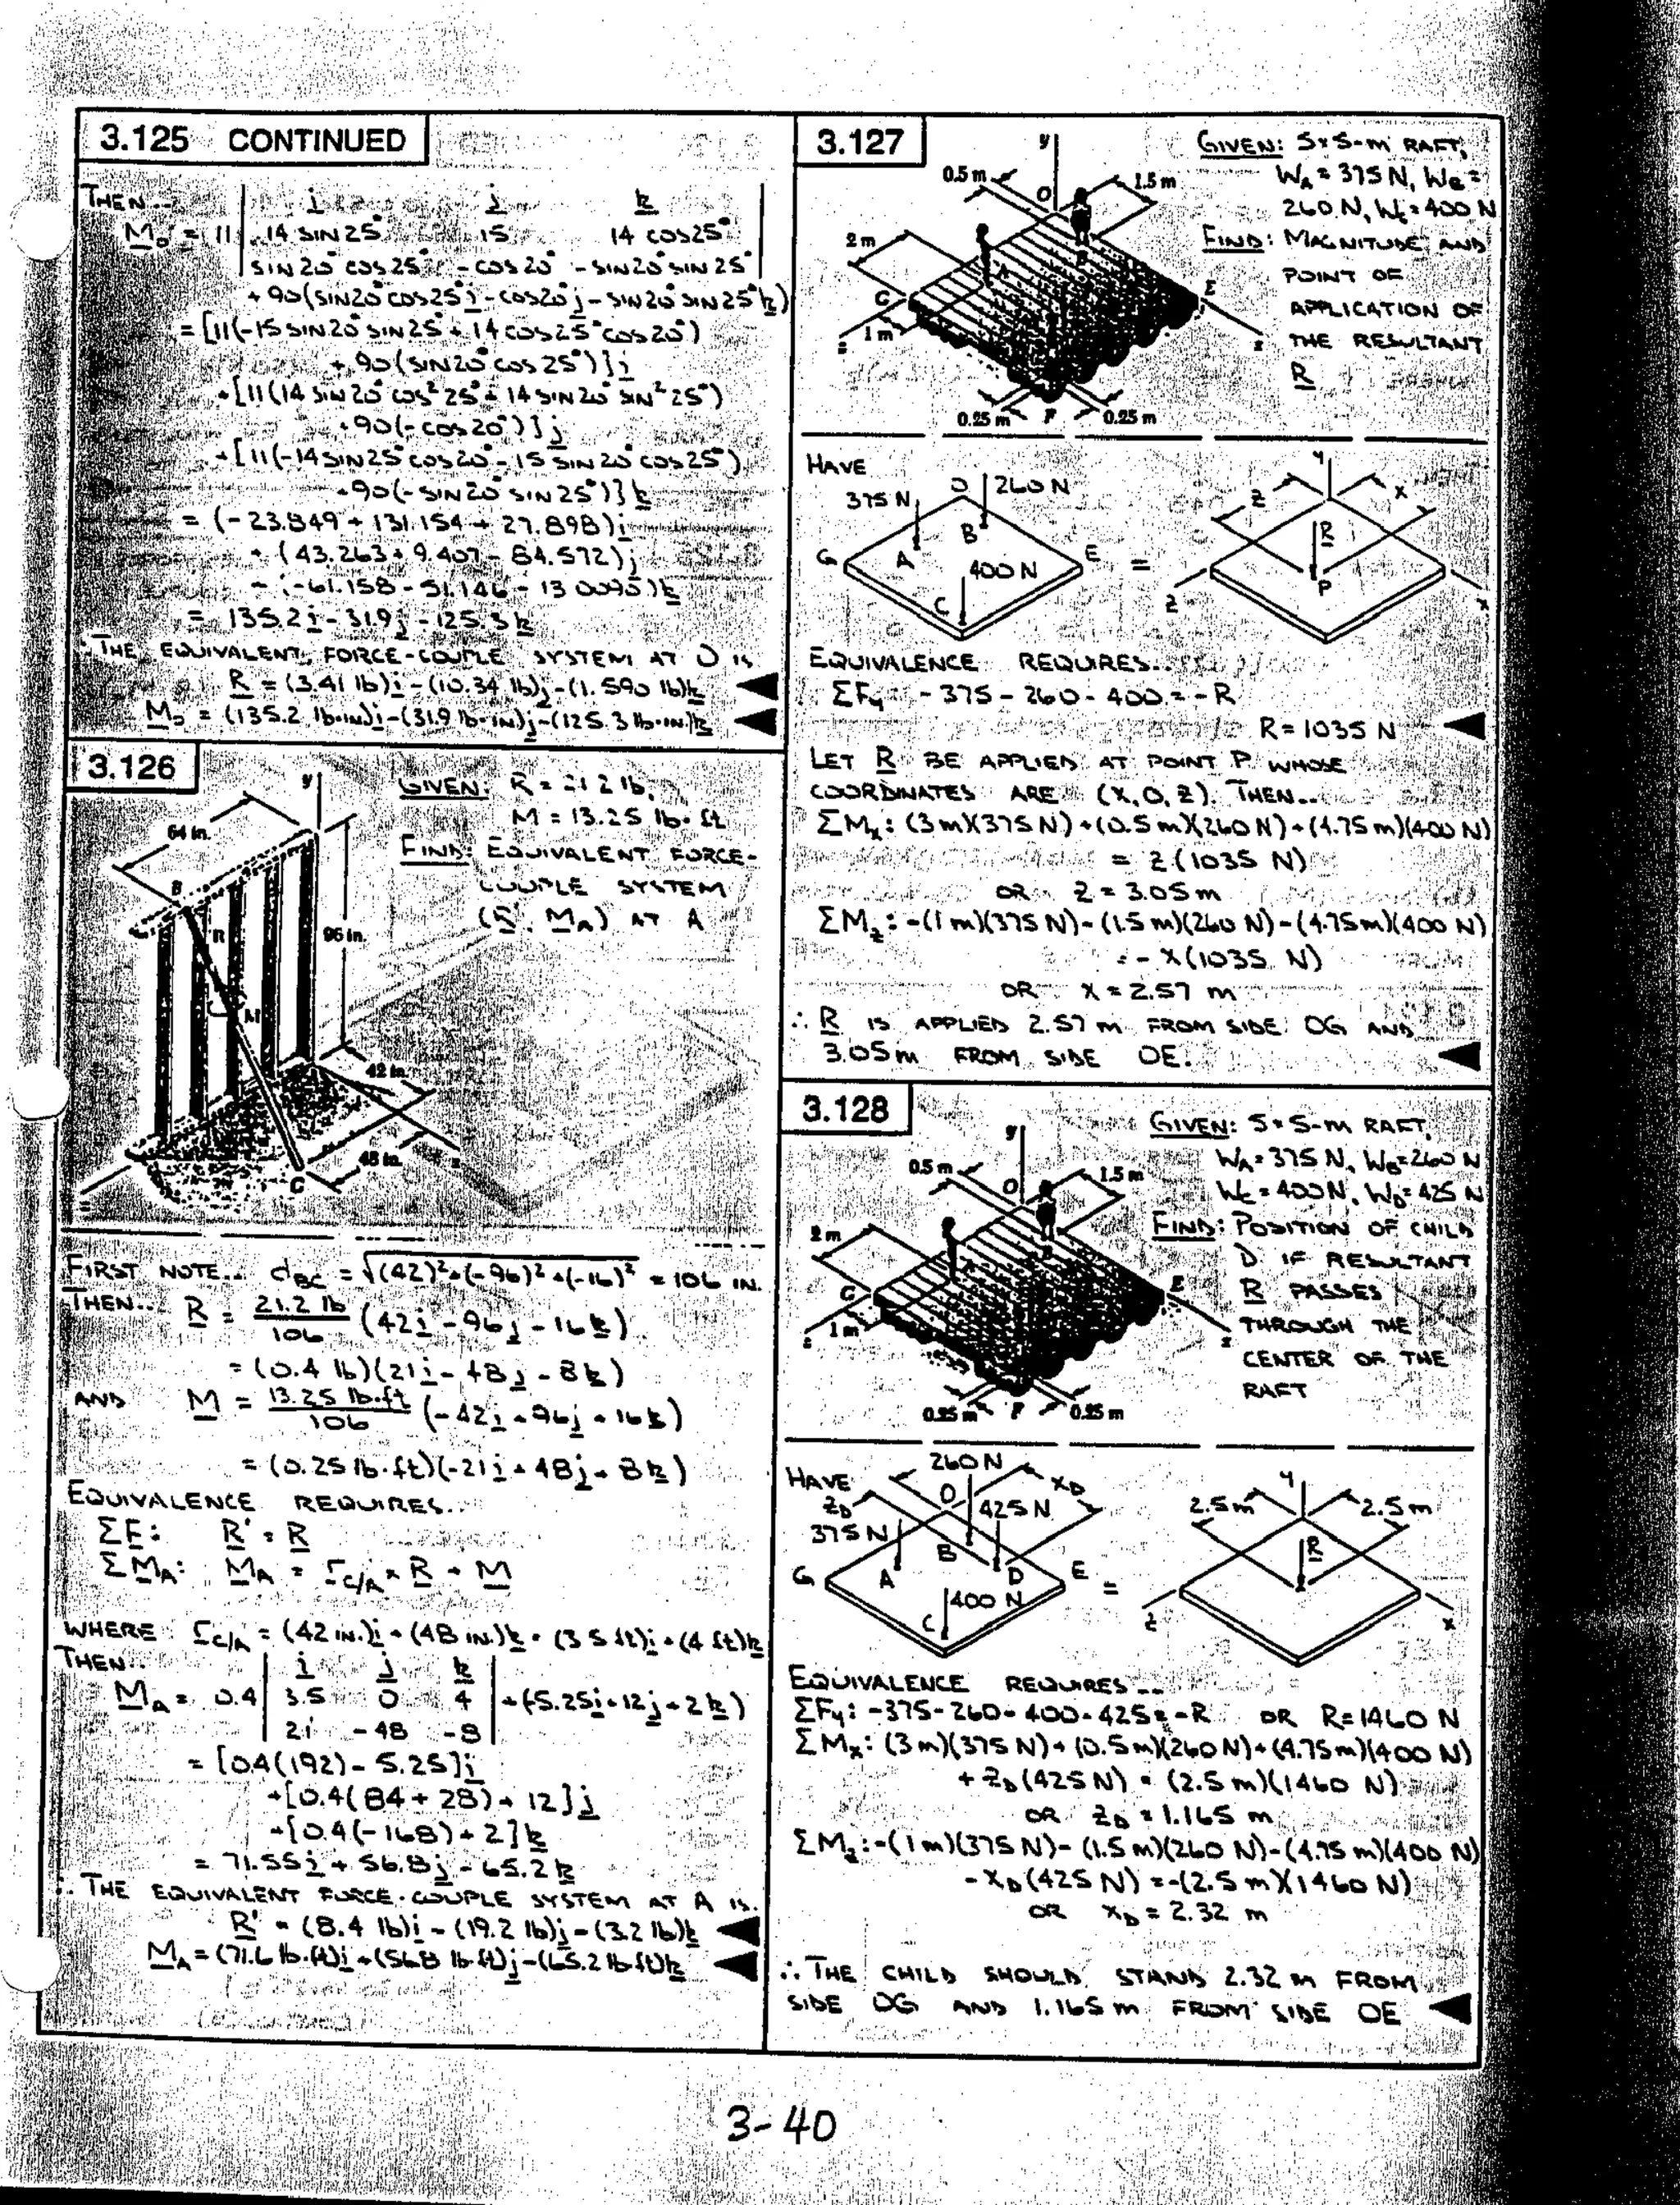 3.125 CONTINUED
THEN...
i j k
M₀ = 11 14 SIN 25° 15 14 COS25°
SIN 20° COS 25° -COS 20° -SIN20° SIN 25°
+ 90(SIN20° COS25° i - COS20° j - SIN20° SIN25° k)
= [11(-15 SIN20° SIN25° + 14 COS25° COS20°)
+ 90(SIN20° COS25°)] i
+[11(14 SIN20° COS² 25° + 14 SIN20° SIN² 25°)
+90(-COS20°)] j
+[11(-14 SIN25° COS20° - 15 SIN20° COS25°)
+90(-SIN20° SIN25°)] k
= (-23.849 + 131.154 + 27.898) i
+ (43.263 + 9.407 - 84.572) j
+ (-61.158 - 51.146 - 13.0095) k
= 135.2 i - 31.9 j - 125.3 k
∴ THE EQUIVALENT FORCE-COUPLE SYSTEM AT O IS
R = (3.41 lb) i - (10.34 lb) j - (1.590 lb) k
M₀ = (135.2 lb·in) i - (31.9 lb·in) j - (125.3 lb·in.) k
3.126
GIVEN: R = 21.2 lb,
M = 13.25 lb·ft
FIND: EQUIVALENT FORCE-
COUPLE SYSTEM
(R', M_A) AT A
y
64 in.
B
R
96 in.
M
42 in.
48 in.
C
FIRST NOTE... d_BC = √(42)² + (-96)² + (-16)² = 106 IN.
THEN... R = 21.2 lb / 106 (42 i - 96 j - 16 k)
= (0.4 lb)(21 i - 48 j - 8 k)
AND M = 13.25 lb·ft / 106 (-42 i + 96 j + 16 k)
= (0.25 lb·ft)(-21 i + 48 j + 8 k)
EQUIVALENCE REQUIRES...
ΣF: R' = R
ΣM_A: M_A = r_C/A × R + M
WHERE r_C/A = (42 IN.) i + (48 IN.) k = (3.5 ft) i + (4 ft) k
THEN...
i j k
M_A = 0.4 3.5 0 4 + (-5.25 i + 12 j + 2 k)
21 -48 -8
= [0.4(192) - 5.25] i
+[0.4(84 + 28) + 12] j
+[0.4(-168) + 2] k
= 71.55 i + 56.8 j - 65.2 k
∴ THE EQUIVALENT FORCE-COUPLE SYSTEM AT A IS.
R' = (8.4 lb) i - (19.2 lb) j - (3.2 lb) k
M_A = (71.6 lb·ft) i + (56.8 lb·ft) j - (65.2 lb·ft) k
3.127
GIVEN: 5×5-m RAFT,
W_A = 375 N, W_B =
260 N, W_C = 400 N
FIND: MAGNITUDE AND
POINT OF
APPLICATION OF
THE RESULTANT
R
y
0.5 m
O
1.5 m
2 m
A
B
G
E
1 m
0.25 m F 0.25 m
HAVE
375 N O 260 N
B
G A E =
400 N
C
y
z x
R
P
z x
EQUIVALENCE REQUIRES...
ΣF_y: -375 - 260 - 400 = -R
R = 1035 N
LET R BE APPLIED AT POINT P WHOSE
COORDINATES ARE (X, O, Z). THEN...
ΣM_x: (3 m)(375 N) + (0.5 m)(260 N) + (4.75 m)(400 N)
= Z (1035 N)
OR Z = 3.05 m
ΣM_z: -(1 m)(375 N) - (1.5 m)(260 N) - (4.75 m)(400 N)
= -X (1035 N)
OR X = 2.57 m
∴ R IS APPLIED 2.57 m FROM SIDE OG AND
3.05 m FROM SIDE OE.
3.128
GIVEN: 5×5-m RAFT,
W_A = 375 N, W_B = 260 N
W_C = 400 N, W_D = 425 N
FIND: POSITION OF CHILD
D IF RESULTANT
R PASSES
THROUGH THE
CENTER OF THE
RAFT
y
0.5 m
O
1.5 m
2 m
G
E
1 m
0.25 m F 0.25 m
HAVE 260 N
z_D O x_D
375 N 425 N
B
G A D E =
400 N
C
y
2.5 m 2.5 m
R
z x
EQUIVALENCE REQUIRES...
ΣF_y: -375 - 260 - 400 - 425 = -R OR R = 1460 N
ΣM_x: (3 m)(375 N) + (0.5 m)(260 N) + (4.75 m)(400 N)
+ Z_D (425 N) = (2.5 m)(1460 N)
OR Z_D = 1.165 m
ΣM_z: -(1 m)(375 N) - (1.5 m)(260 N) - (4.75 m)(400 N)
- X_D (425 N) = -(2.5 m)(1460 N)
OR X_D = 2.32 m
∴ THE CHILD SHOULD STAND 2.32 m FROM
SIDE OG AND 1.165 m FROM SIDE OE
3-40